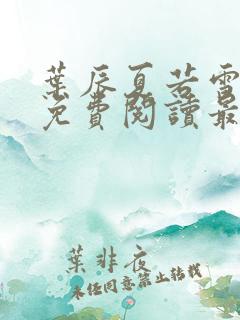 葉辰夏若雪
免費閱讀最
葉非夜
未经同意禁止转载